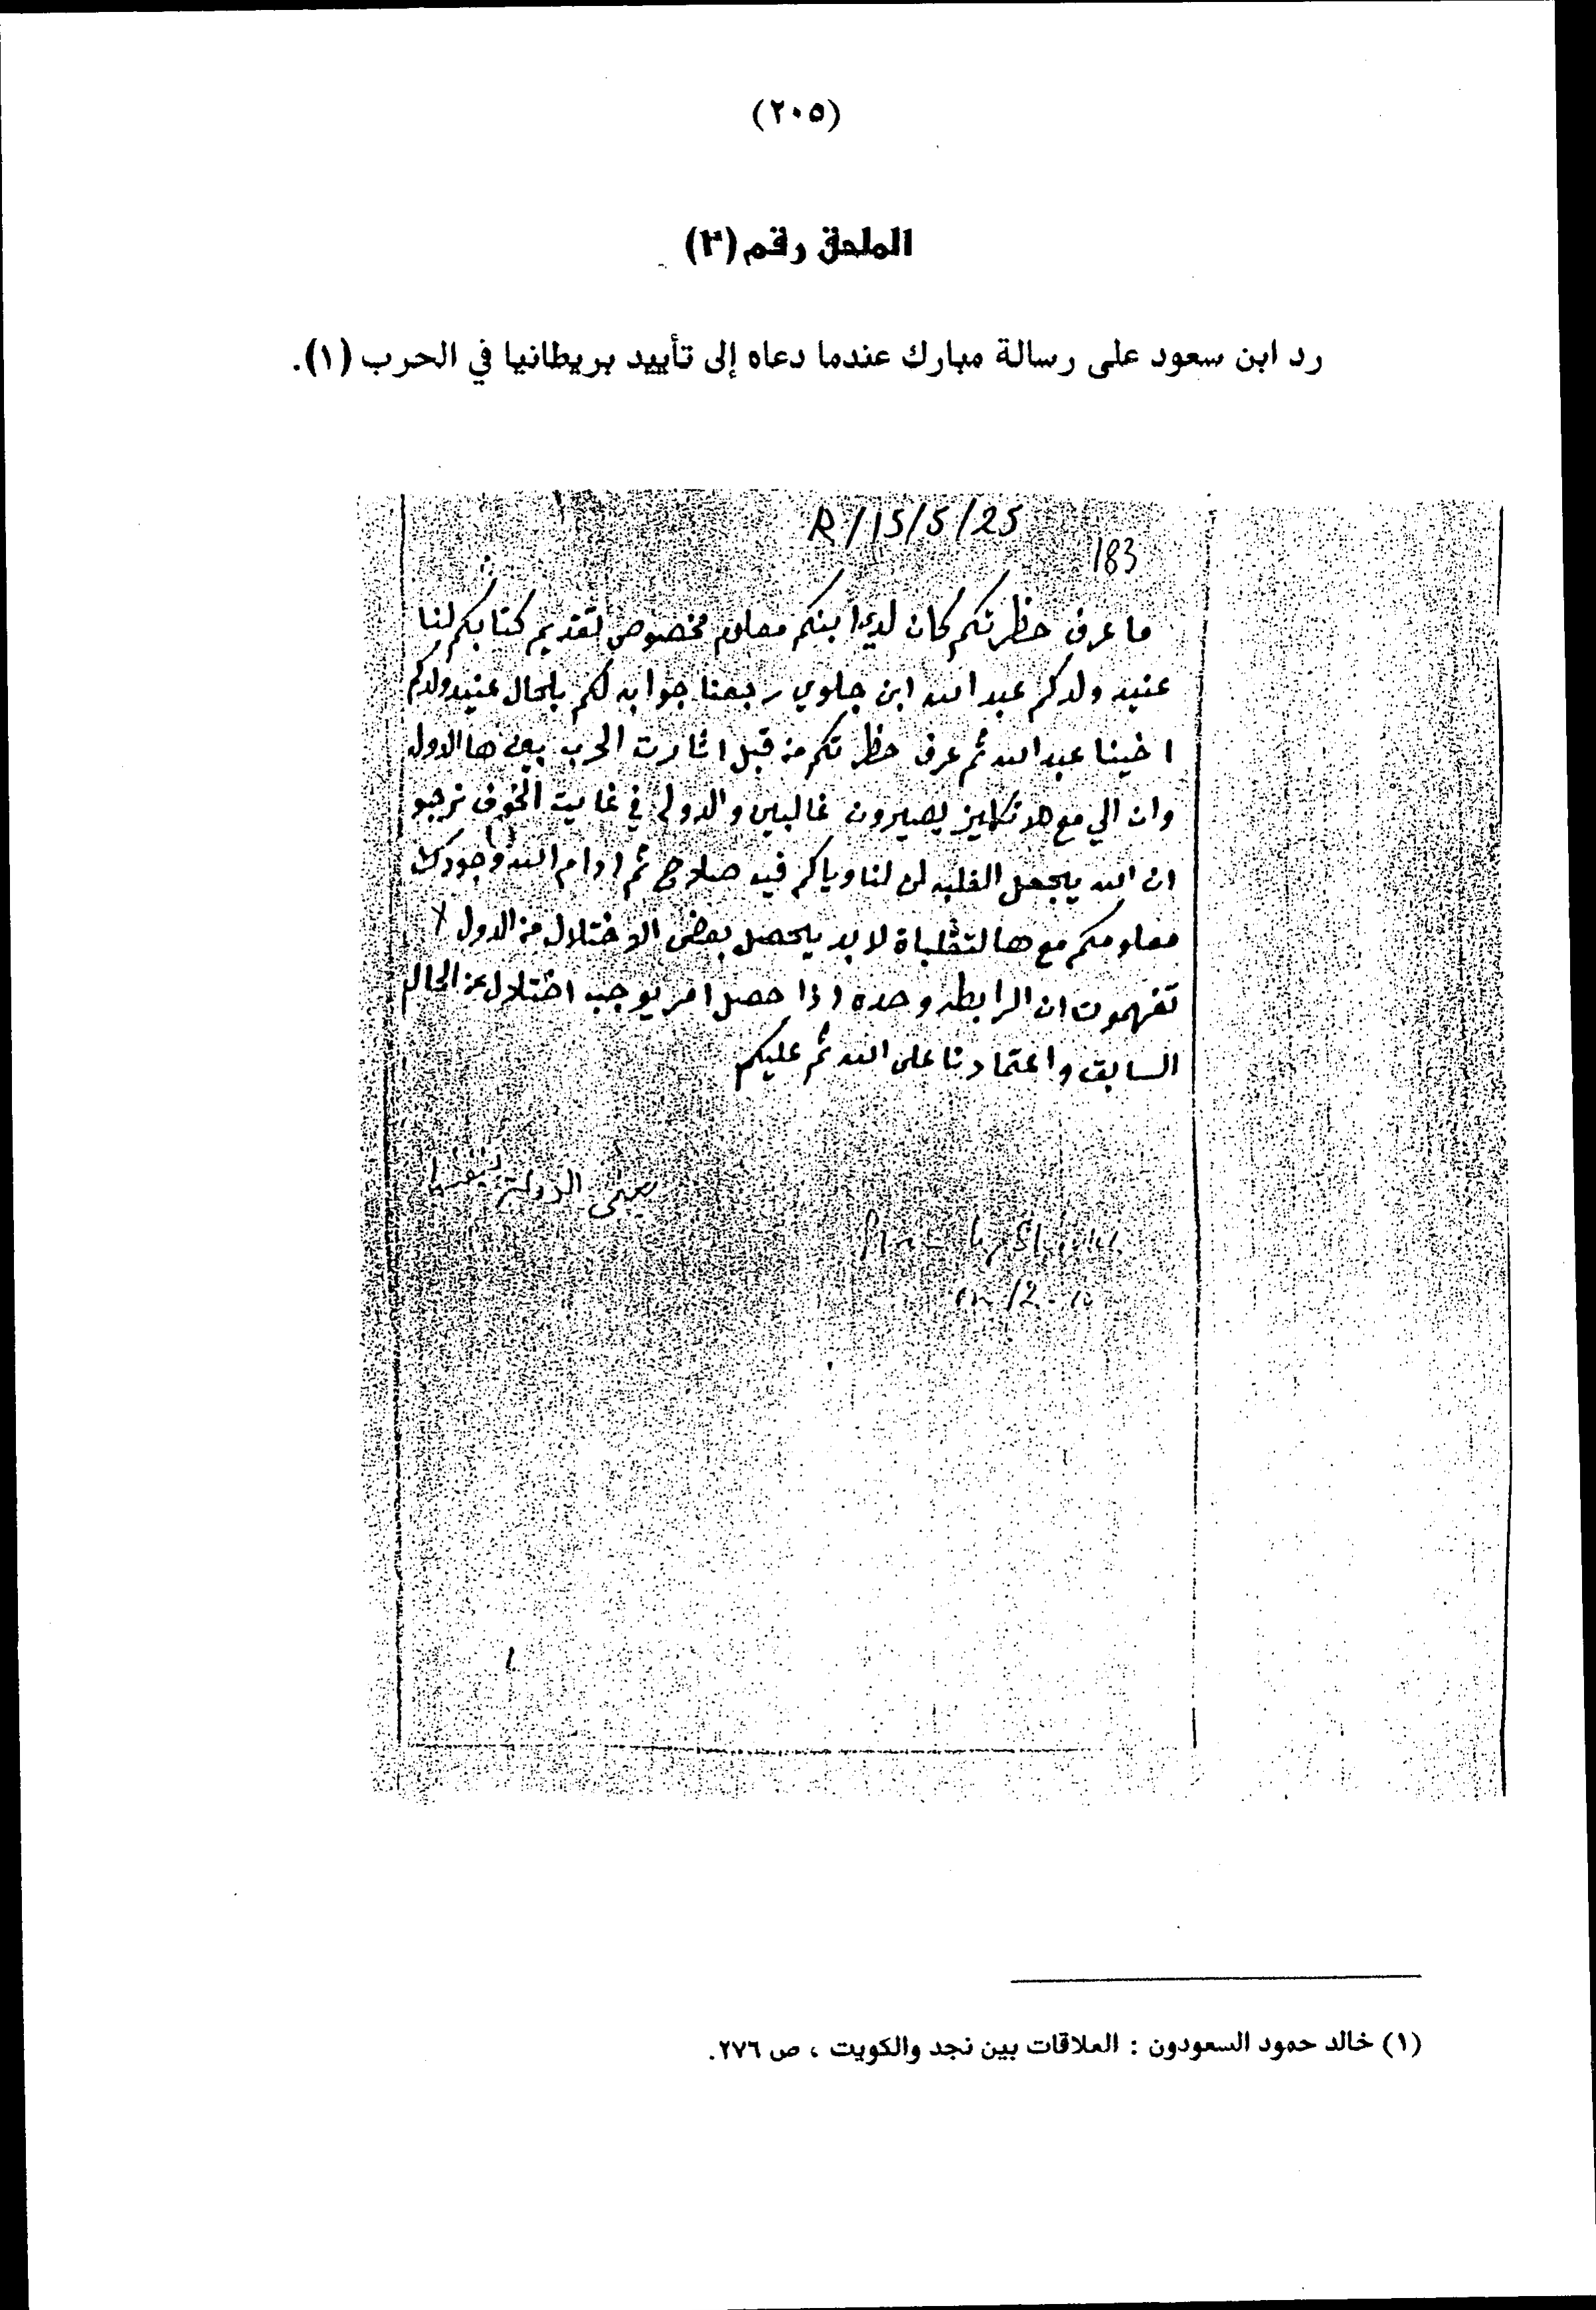 (٢٠٥)
الملحق رقم (٣)
رد ابن سعود على رسالة مبارك عندما دعاه إلى تأييد بريطانيا في الحرب (١).
R/15/5/25
183
ما عرف حظرتكم كان لدى ابنكم معلوم مخصوص تقديم كتابكم لنا
عنيد ولدكم عبد الله ابن جلوي رجعنا جوابه لكم بلحال عنيد ولدكم
اخينا عبد الله ثم عرف حظرتكم من قبل اثارت الحرب بين ها الدول
وان الي مع هلانكليز يصيرون غالبين والدولة في غايت الخوف نرجو
ان الله يجعل الغلبه لمن لنا وياكم فيه صلاح ثم ادام الله وجودك
معلومكم مع هالتقلباة لابد يحصل بعض الاختلال من الدول
تفهمون ان الرابطه وحده اذا حصل امر يوجب اختلال عن الحال
السابق واعتمادنا على الله ثم عليكم
(١) خالد حمود السعودون : العلاقات بين نجد والكويت ، ص ٢٧٦.